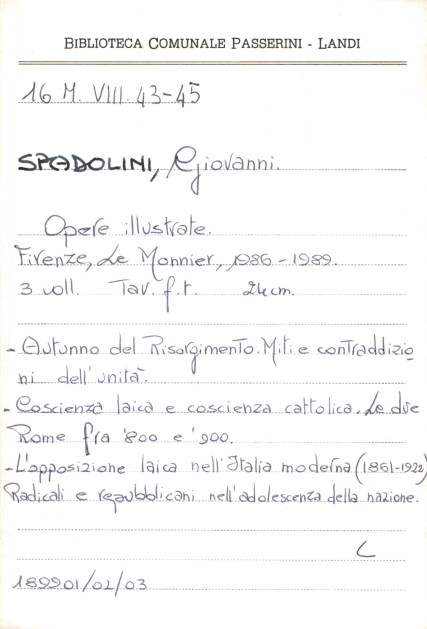 BIBLIOTECA COMUNALE PASSERINI - LANDI
16 M. VIII. 43-45
SPADOLINI, Giovanni.
Opere illustrate.
Firenze, Le Monnier, 1986-1989.
3 voll. Tav. f.t. 24 cm.
- Autunno del Risorgimento. Miti e contraddizio
ni dell'unità.
- Coscienza laica e coscienza cattolica. Le due
Rome fra '800 e '900.
- L'opposizione laica nell'Italia moderna (1861-1922)
Radicali e repubblicani nell'adolescenza della nazione.
C
189901/02/03